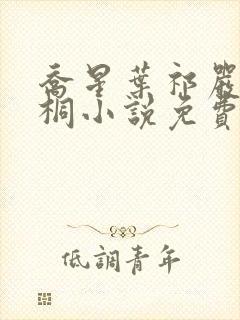 喬星葉祁嚴
桐小説免費
低調青年